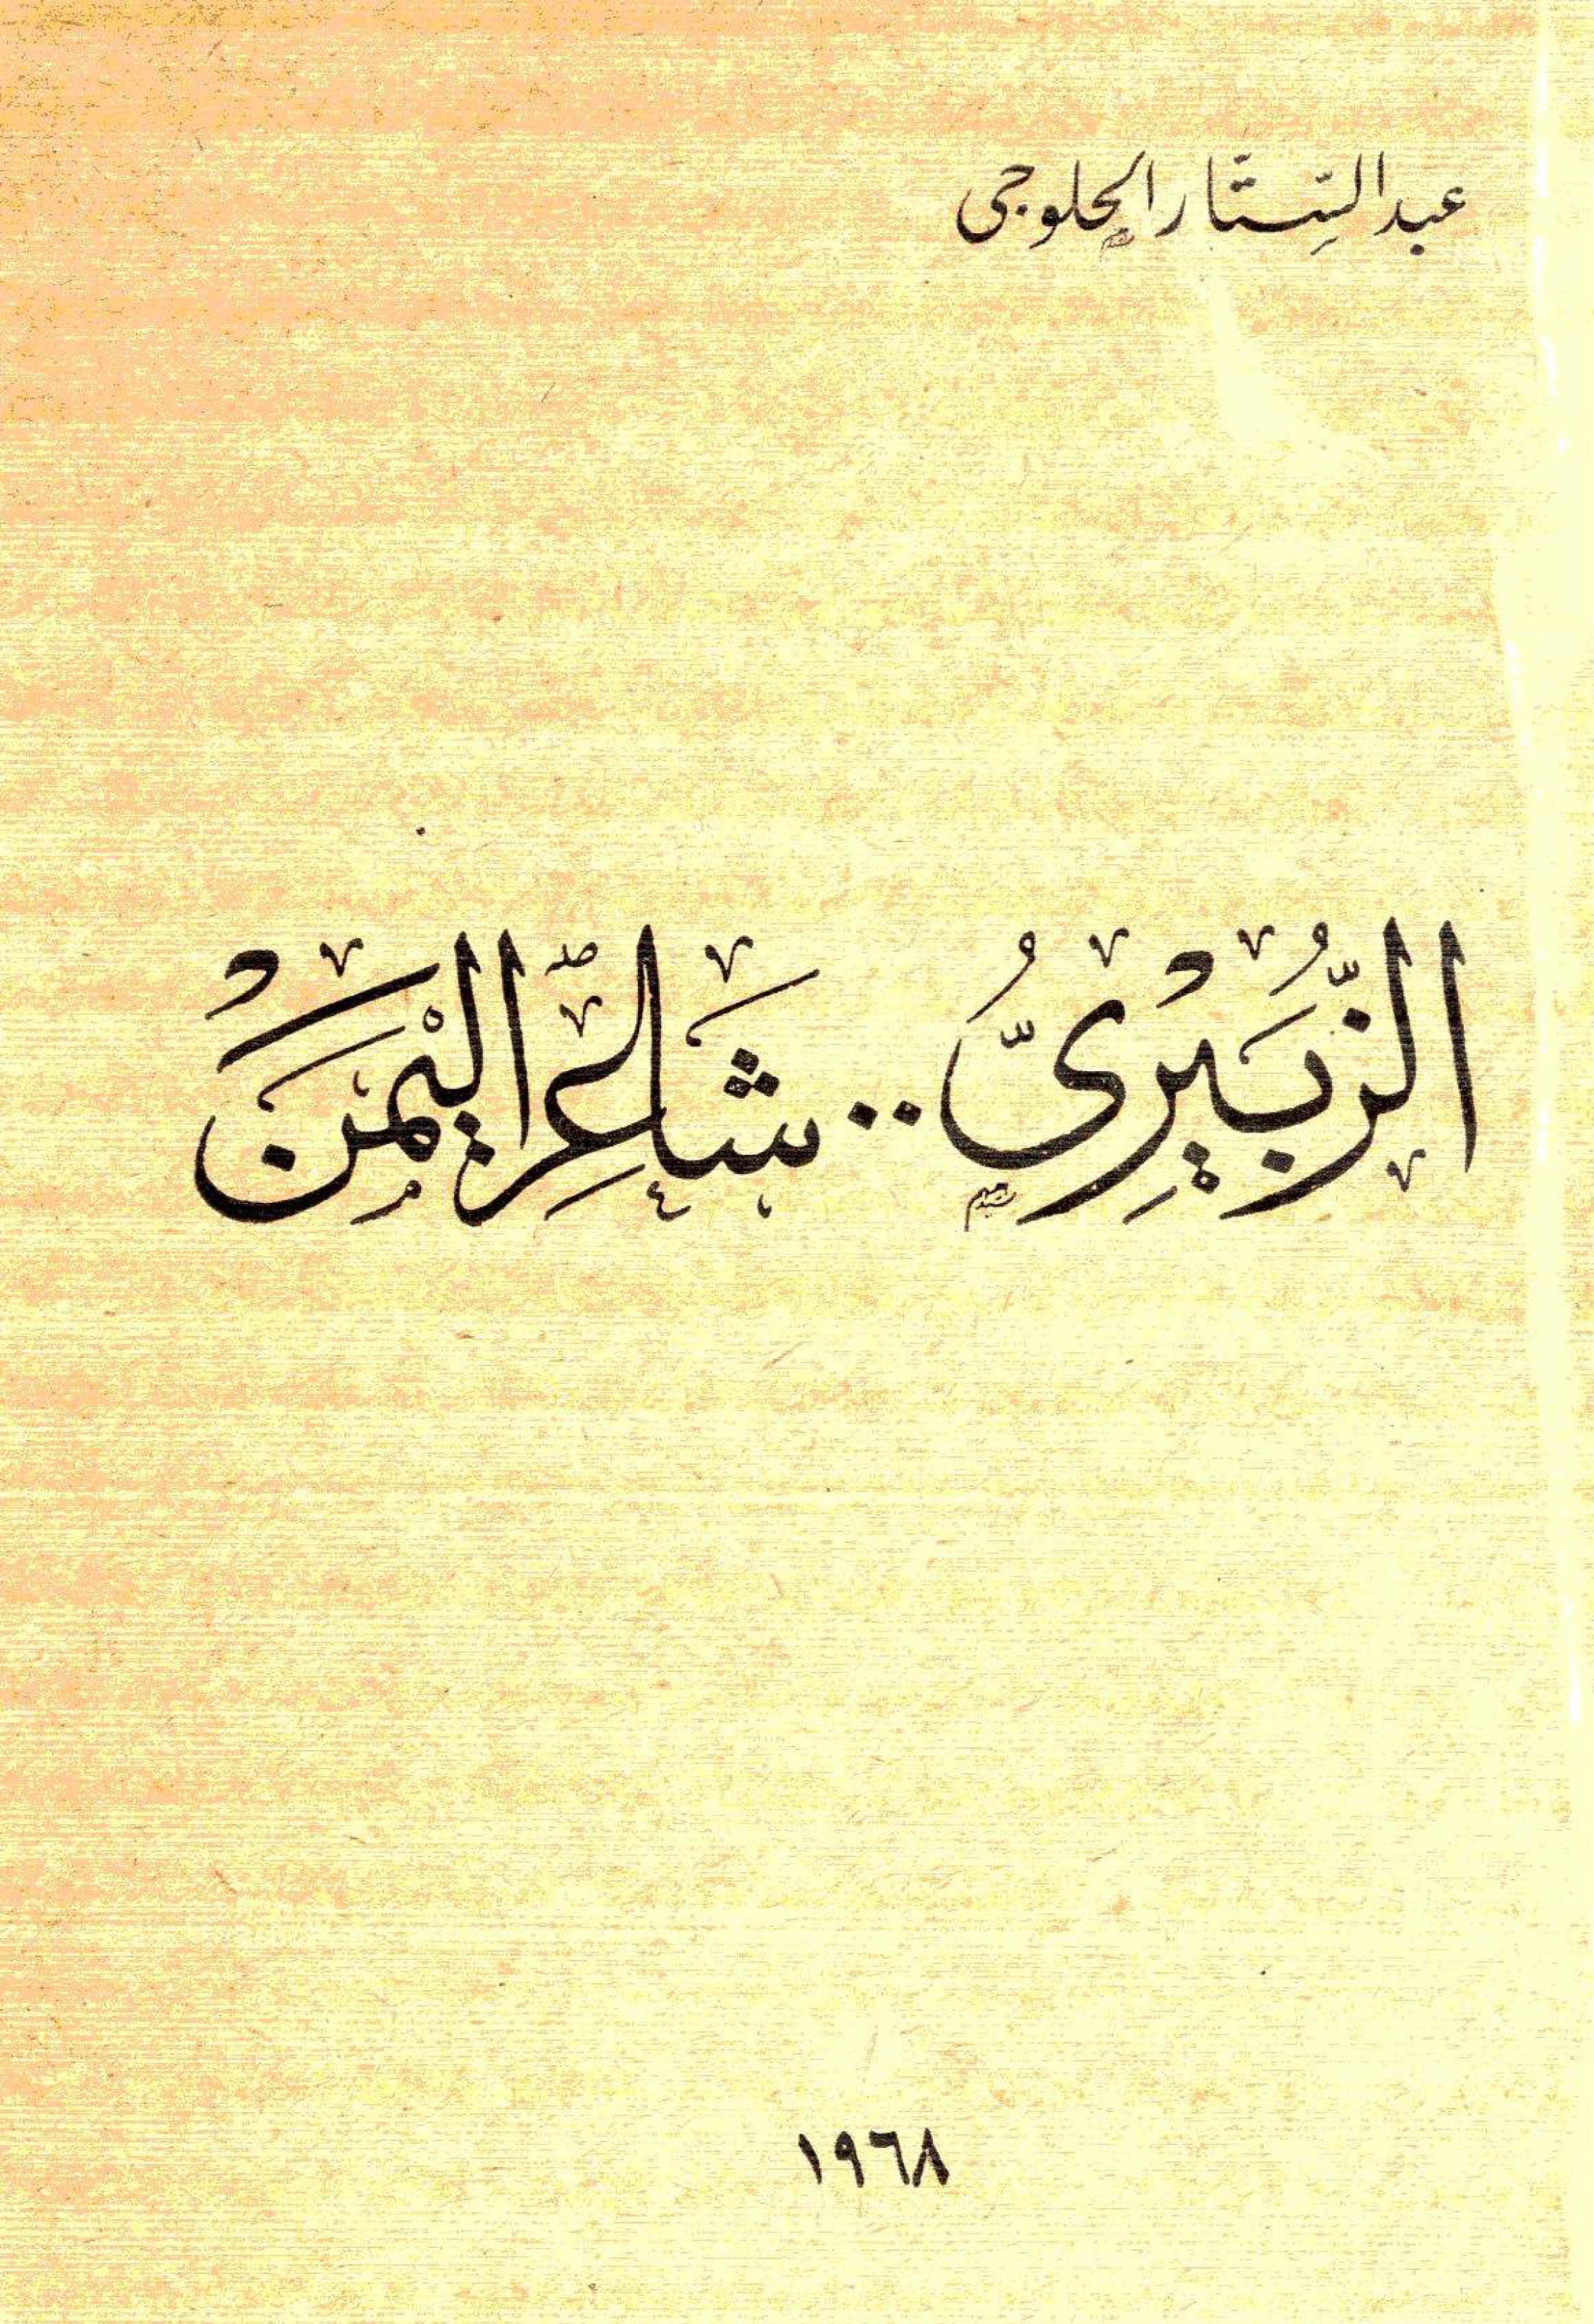 عبد الستار الحلوجى
الزُّبَيْرِىُّ .. شَاعِرُ اليْمَنَ
١٩٦٨